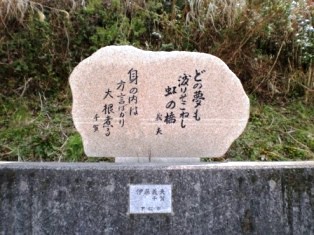 どの夢も
渡りそこねし
虹の橋
義夫
身の内は
方言ばかり
大根煮る
千賀
伊藤義夫
千賀